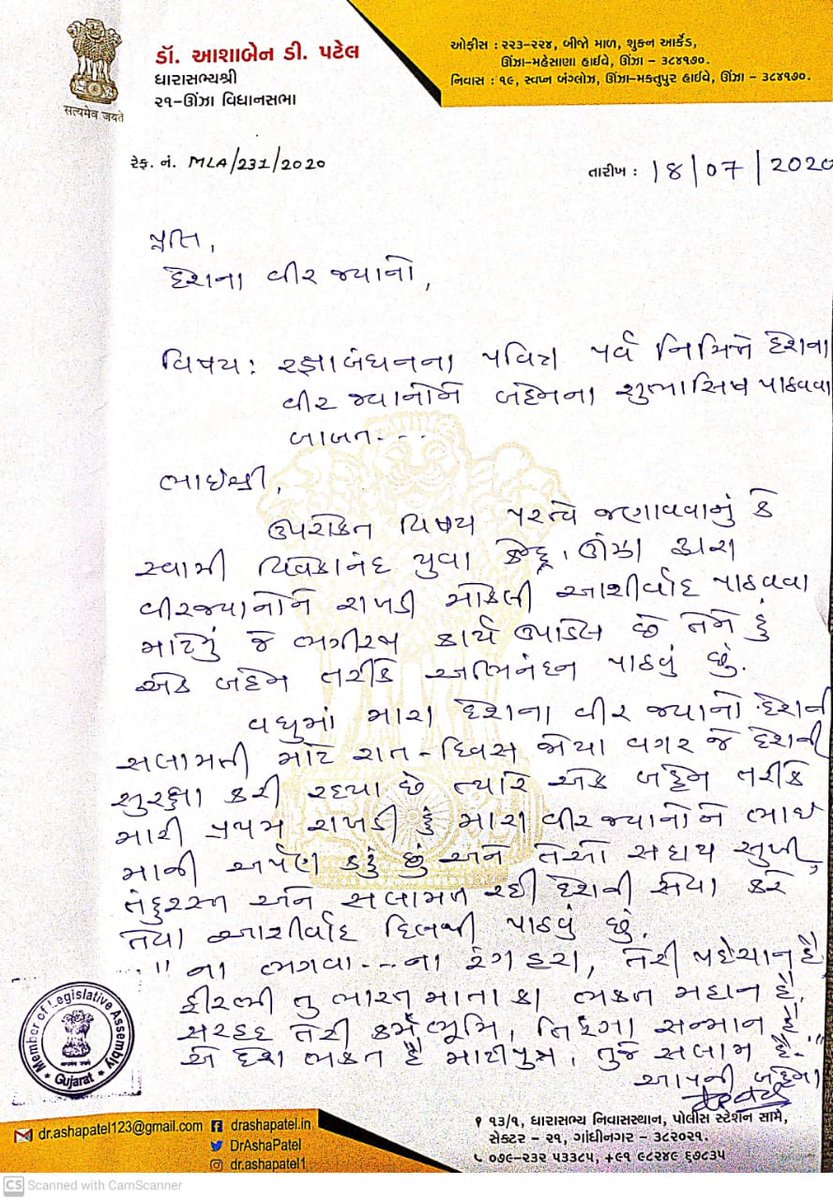 ડૉ. આશાબેન ડી. પટેલ
ધારાસભ્યશ્રી
૨૧-ઊંઝા વિધાનસભા
सत्यमेव जयते
ઓફીસ : ૨૨૩-૨૨૪, બીજો માળ, શુકન આર્કેડ,
ઊંઝા-મહેસાણા હાઈવે, ઊંઝા - ૩૮૪૧૭૦.
નિવાસ : ૧૯, સ્વપ્ન બંગ્લોઝ, ઊંઝા-મકતુપુર હાઈવે, ઊંઝા - ૩૮૪૧૭૦.
રેફ. નં. MLA/231/2020
તારીખ : 18/07/2020
પ્રતિ,
દેશના વીર જવાનો,
વિષય: રક્ષાબંધનના પવિત્ર પર્વ નિમિત્તે દેશના
વીર જવાનોને બહેનના શુભાસિષ પાઠવવા
બાબત...
ભાઇશ્રી,
ઉપરોકત વિષય પરત્વે જણાવવાનું કે
સ્વામી વિવેકાનંદ યુવા કેન્દ્ર, ઊંઝા દ્વારા
વીરજવાનોને રાખડી મોકલી આશીર્વાદ પાઠવવા
માટેનું જે ભગીરથ કાર્ય ઉપાડેલ છે તેને હું
એક બહેન તરીકે અભિનંદન પાઠવું છું.
વધુમાં મારા દેશના વીર જવાનો દેશની
સલામતી માટે રાત-દિવસ જોયા વગર જે દેશની
સુરક્ષા કરી રહયા છે ત્યારે એક બહેન તરીકે
મારી પ્રથમ રાખડી હું મારા વીર જવાનોને ભાઇ
માની અર્પણ કરું છું અને તેઓ સદાય સુખી,
તંદુરસ્ત અને સલામત રહી દેશની સેવા કરે
તેવા આશીર્વાદ દિલથી પાઠવું છું.
"ના ભગવા...ના રંગ હરા, તેરી પહેચાન હૈ
ફીરભી તુ ભારત માતા કા ભકત મહાન હૈ,
સરહદ તેરી કર્મ ભૂમિ, તિરંગા સન્માન હૈ
એ દેશ ભકત હૈ માટીપુત્ર, તુજે સલામ હૈ."
આપની બહેન
Member of Legislative Assembly
Gujarat
dr.ashapatel123@gmail.com
drashapatel.in
DrAshaPatel
dr.ashapatel1
૧૩/૧, ધારાસભ્ય નિવાસસ્થાન, પોલીસ સ્ટેશન સામે,
સેક્ટર - ૨૧, ગાંધીનગર - ૩૮૨૦૨૧.
૦૭૯-૨૩૨ ૫૩૩૮૫, +૯૧ ૯૮૨૪૯ ૬૭૮૩૫
CS Scanned with CamScanner